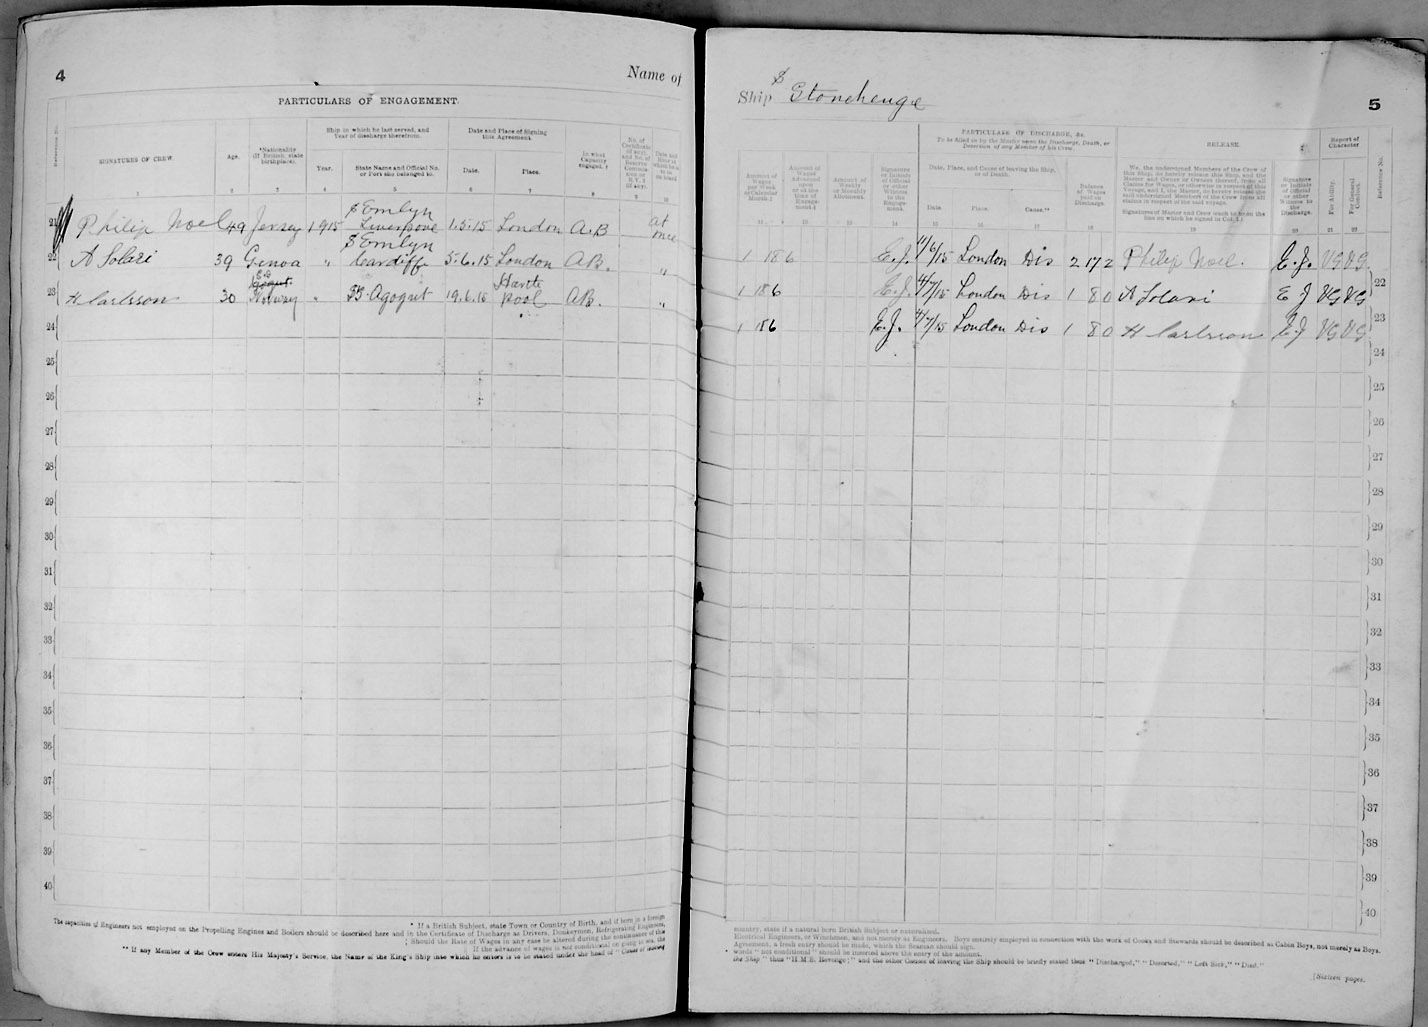 4
Name of
PARTICULARS OF ENGAGEMENT.
SIGNATURES OF CREW.
Age.
*Nationality
(If British, state
birthplace).
Ship in which he last served, and
Year of discharge therefrom.
Year.
State Name and Official No.
or Port she belonged to.
Date and Place of Signing
this Agreement.
Date.
Place.
In what
Capacity
engaged. †
1 2 3 4 5 6 7 8 9 10
21 Philip Noel 49 Jersey 1915 S Emlyn Liverpool 1.5.15 London A.B at once
22 A Solari 39 Genoa " S Emlyn Cardiff 5.6.15 London A.B. "
23 H Carlsson 30 Norway " SS. Agogut 19.6.15 Hartlepool A.B. "
24
25
26
27
28
29
30
31
32
33
34
35
36
37
38
39
40
* If a British Subject, state Town or Country of Birth, and if born in a foreign
The capacities of Engineers not employed on the Propelling Engines and Boilers should be described here and in the Certificate of Discharge as Drivers, Donkeymen, Refrigerating Engineers,
‡ Should the Rate of Wages in any case be altered during the continuance of this
If the advance of wages is not conditional on going to sea, the
** If any Member of the Crew enters His Majesty's Service, the Name of the King's Ship into which he enters is to be stated under the head of "Cause of leaving
Ship S Stonehenge
5
PARTICULARS OF DISCHARGE, &c.
To be filled in by the Master upon the Discharge, Death, or
Desertion of any Member of his Crew.
RELEASE.
Report of
Character
Amount of
Wages
per Week
or Calendar
Month.‡
Amount of
Wages
Advanced
upon
or at the
time of
Engage-
ment.§
Amount of
Weekly
or Monthly
Allotment.
Signature
or Initials
of Official
or other
Witness to
the
Engage-
ment.
Date, Place, and Cause of leaving the Ship,
or of Death.
Date
Place.
Cause.**
Balance
of Wages
paid on
Discharge.
We, the undersigned Members of the Crew of
this Ship, do hereby release this Ship, and the
Master and Owner or Owners thereof, from all
Claims for Wages, or otherwise in respect of this
Voyage, and I, the Master, do hereby release the
said undersigned Members of the Crew from all
claims in respect of the said voyage.
Signatures of Master and Crew (each to be on the
line on which he signed in Col. 1.)
Signature
or Initials
of Official
or other
Witness to
the
Discharge.
For Ability.
For General
Conduct.
Reference No.
1 18 6 E.J. 11/6/15 London Dis 2 17 2 Philip Noel. E.J. VG VG
1 18 6 E.J. 4/7/15 London Dis 1 8 0 A Solari E J VG VG 22
1 18 6 E.J. 4/7/15 London Dis 1 8 0 H Carlsson E J VG VG 23
24
25
26
27
28
29
30
31
32
33
34
35
36
37
38
39
40
country, state if a natural born British Subject or naturalized.
Electrical Engineers, or Winchmen, and not merely as Engineers. Boys entirely employed in connection with the work of Cooks and Stewards should be described as Cabin Boys, not merely as Boys.
Agreement, a fresh entry should be made, which the Seaman should sign.
words "not conditional" should be inserted above the entry of the amount.
the Ship" thus "H.M.S. Revenge;" and the other Causes of leaving the Ship should be briefly stated thus "Discharged," "Deserted," "Left Sick," "Died."
[Sixteen pages.